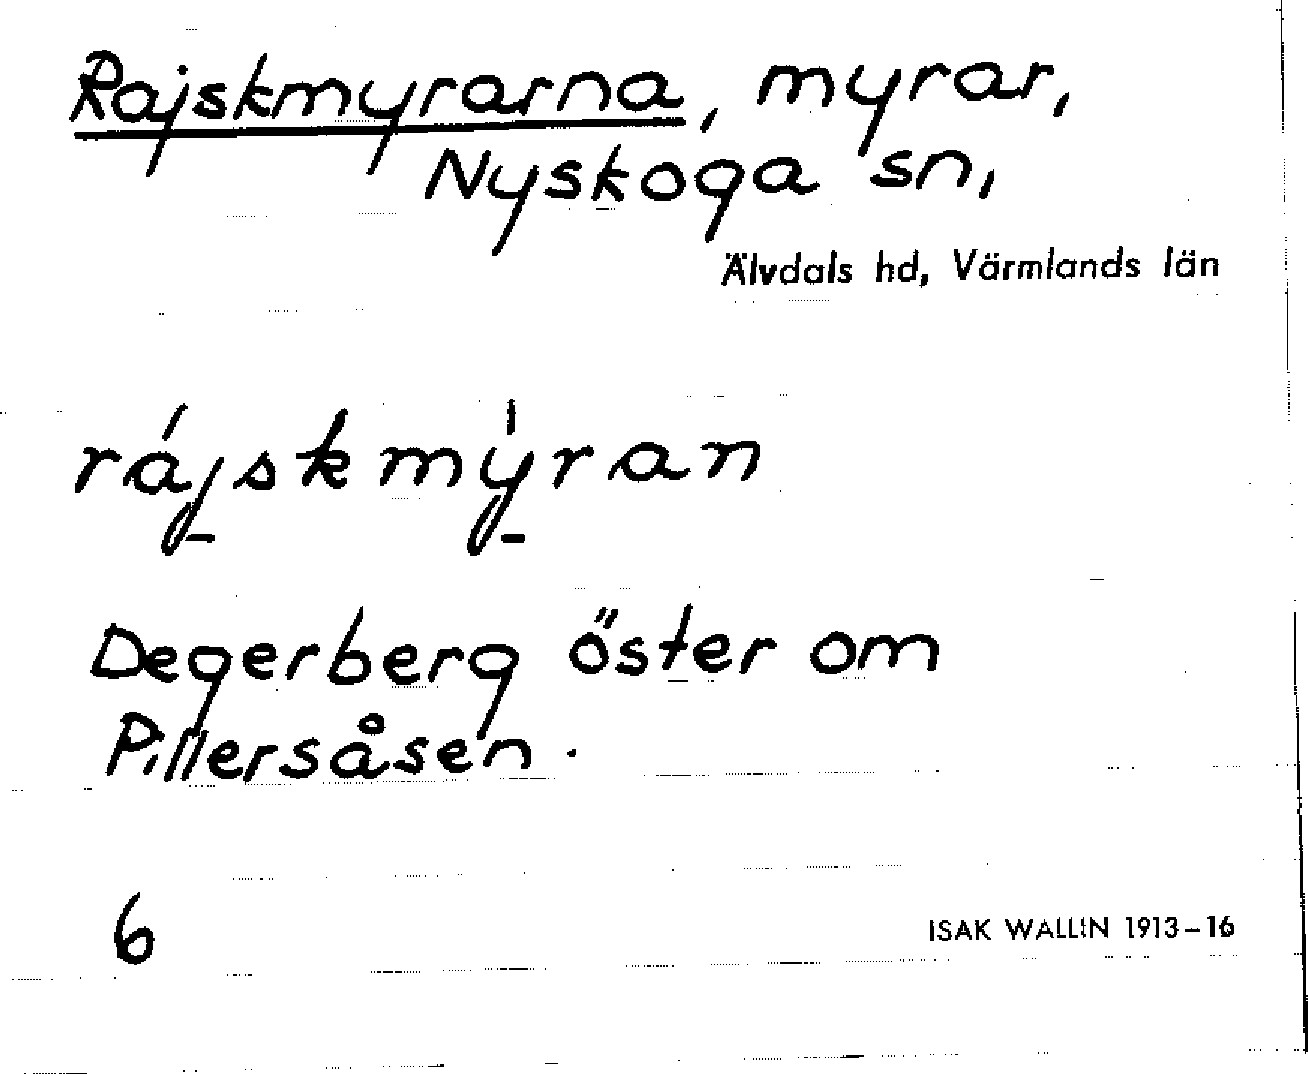 Rajskmyrarna, myrar,
Nyskoga sn,
Älvdals hd, Värmlands län
rájskmýran
Degerberg öster om
Pillersåsen.
6
ISAK WALLIN 1913–16